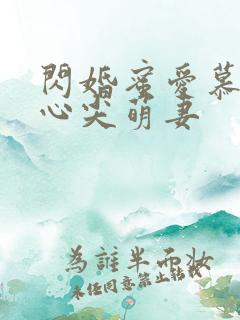 閃婚蜜愛慕
心尖萌妻
為誰半面妝
未經同意禁止轉載